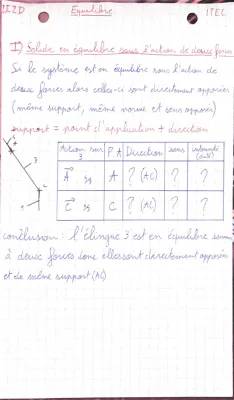 Equilibre
ITEC
I) Solide en équilibre sous l'action de deux forces
Si le système est en équilibre sous l'action de
deux forces alors celles-ci sont directement opposées
(même support, même norme et sens opposés)
support = point d'application + direction
Action sur 3 | P.A | Direction | sens | intensité
A | A | ? (AC) | ? | ?
C | C | ? (AC) | ? | ?
3
C
conclusion : l'élingue 3 est en équilibre
à deux forces donc elles sont directement opposées
et de même support (AC)